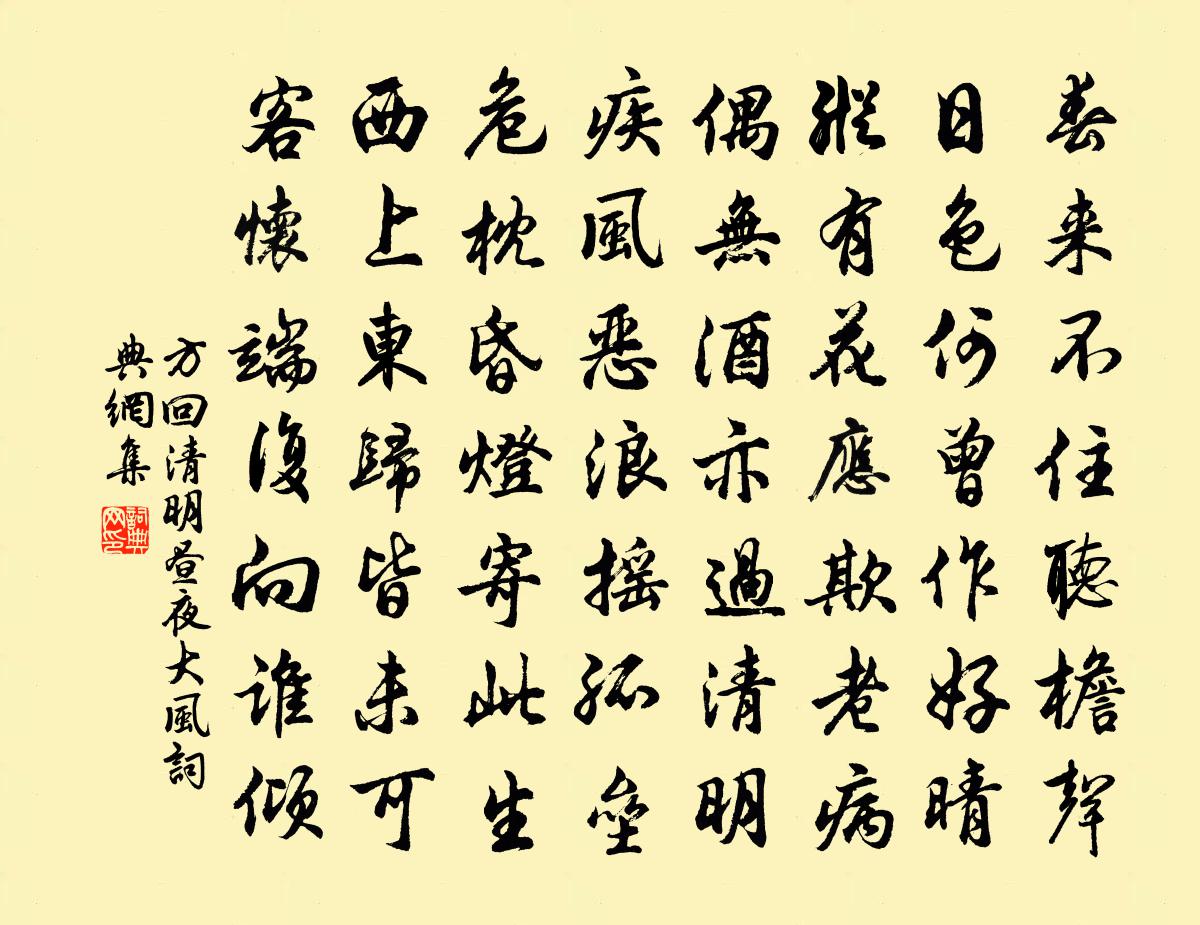 春來不住聽檐聲
日色何曾作好晴
縱有花應欺老病
偶無酒亦過清明
疾風惡浪搖孤壘
危枕昏燈寄此生
西上東歸皆未可
客懷端復向誰傾
方回清明晝夜大風詞
典網集
詞典
网印